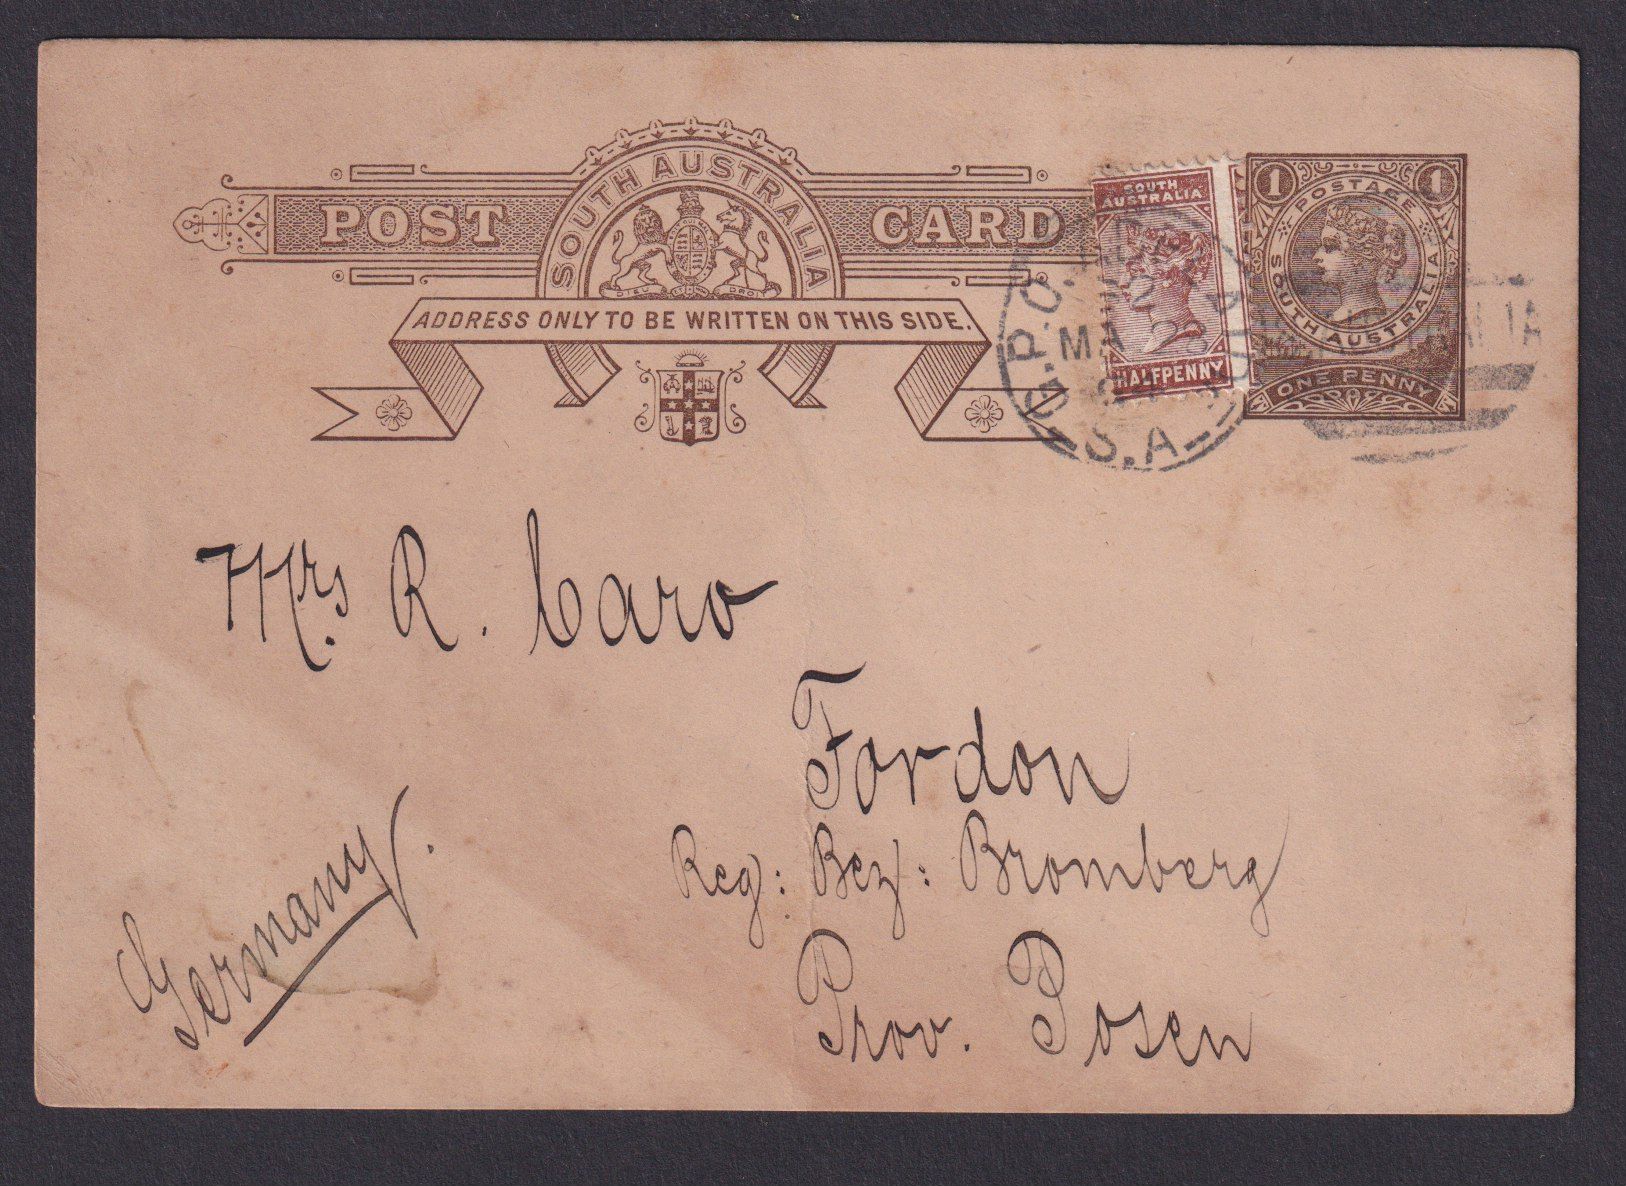 POST CARD
SOUTH AUSTRALIA
DIEU ET MON DROIT
ADDRESS ONLY TO BE WRITTEN ON THIS SIDE.
SOUTH AUSTRALIA
HALFPENNY
1 POSTAGE 1
SOUTH AUSTRALIA
ONE PENNY
G.P.O.
MA
S.A
Mrs R. Caro
Fordon
Reg: Bez: Bromberg
Prov. Posen
Germany.